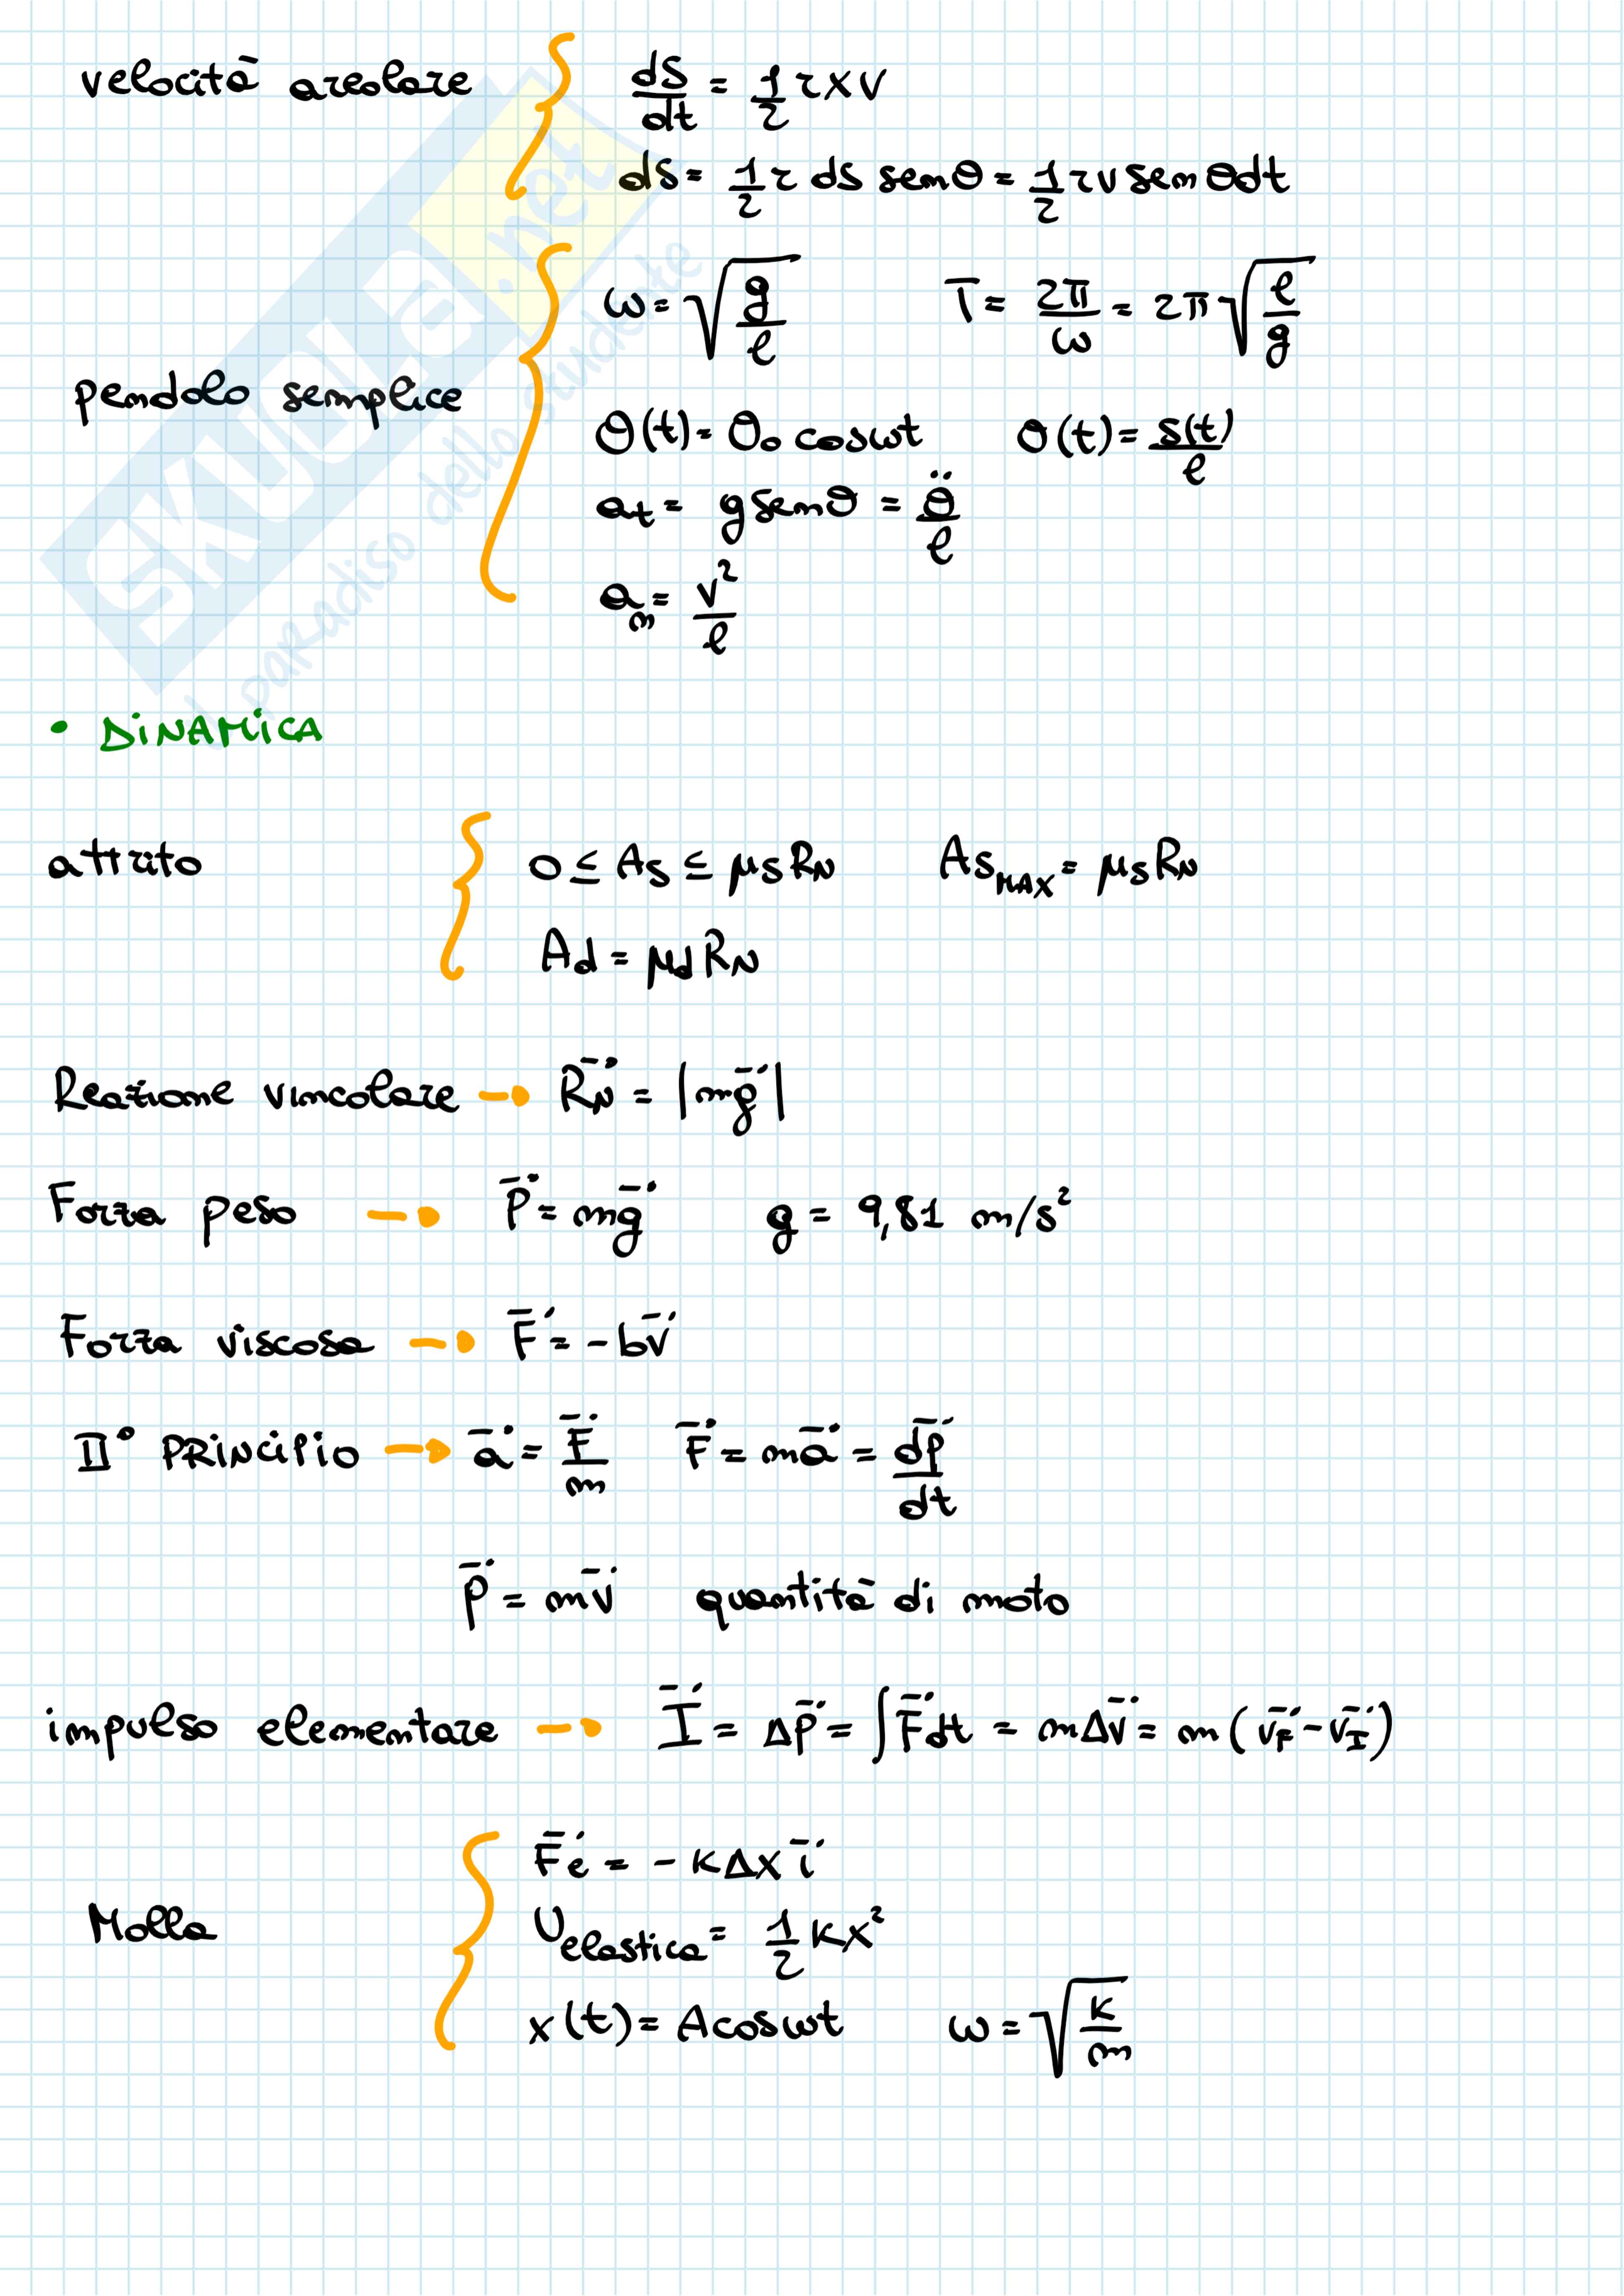 velocità areolare
dS/dt = 1/2 r x v
dS = 1/2 r ds senθ = 1/2 r v sen θ dt
pendolo semplice
ω = √(g/l) T = 2π/ω = 2π √(l/g)
θ(t) = θ₀ cosωt θ(t) = s(t)/l
at = g senθ = θ̈/l
an = v²/l
SKUOLA.net
il paradiso dello studente
• DINAMICA
attrito
0 ≤ As ≤ μs RN As MAX = μs RN
Ad = μd RN
Reazione vincolare → R⃗N = |mg⃗|
Forza peso → P⃗ = mg⃗ g = 9,81 m/s²
Forza viscosa → F⃗ = -bv⃗
II° PRINCIPIO → a⃗ = F⃗/m F⃗ = ma⃗ = dp⃗/dt
p⃗ = mv⃗ quantità di moto
impulso elementare → I⃗ = Δp⃗ = ∫F⃗dt = mΔv⃗ = m(v⃗F - v⃗I)
Molla
F⃗e = -KΔx i⃗
Uelastica = 1/2 Kx²
x(t) = Acosωt ω = √(K/m)